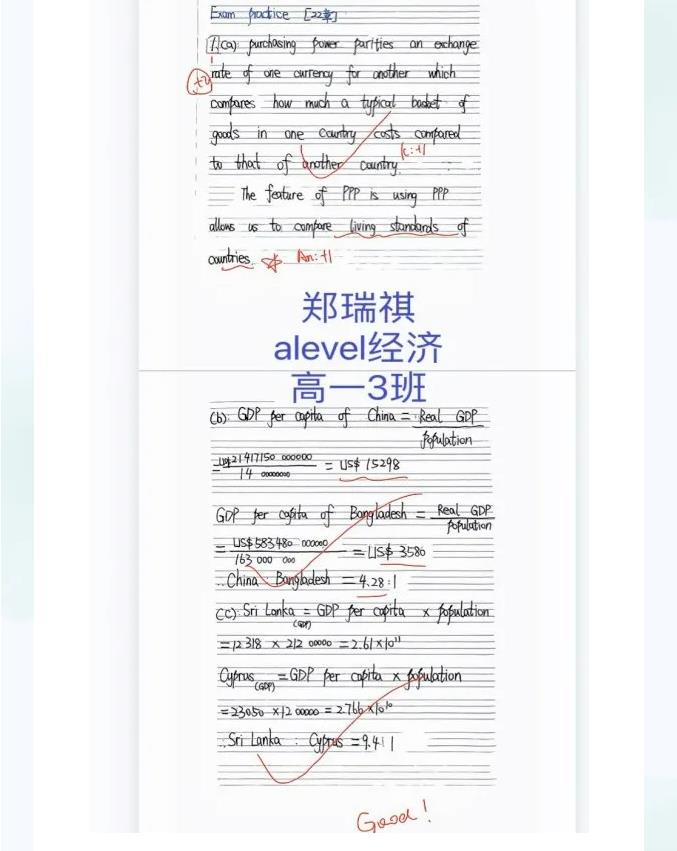 Exam practice [22章]
1.(a) purchasing power parities an exchange
+2 rate of one currency for another which
compares how much a typical basket of
goods in one country costs compared
to that of another country. k:+1
The feature of PPP is using PPP
allows us to compare living standards of
countries. An:+1
郑瑞祺
alevel经济
高一3班
(b) GDP per capita of China = Real GDP
population
= US$21417150 000000
14 00000000
= US$ 15298
GDP per capita of Bangladesh = Real GDP
population
= US$583480 000000
163 000 000
= US$ 3580
∴ China : Bangladesh = 4.28:1
(c) Sri Lanka = GDP per capita × population
(GDP)
= 12318 × 212 00000 = 2.61×10¹¹
Cyprus = GDP per capita × population
(GDP)
= 23050 ×12 00000 = 2.766×10¹⁰
∴ Sri Lanka : Cyprus = 9.4:1
Good!